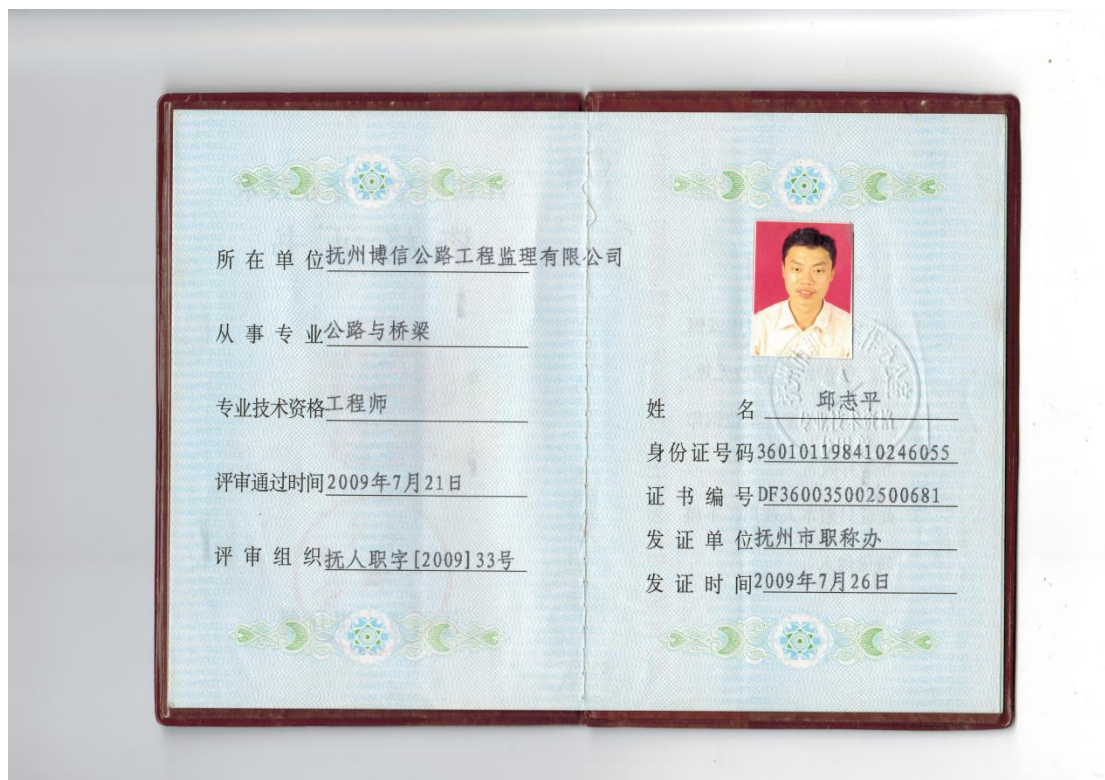 所在单位抚州博信公路工程监理有限公司
从事专业公路与桥梁
专业技术资格工程师
评审通过时间2009年7月21日
评审组织抚人职字[2009]33号
姓名邱志平
身份证号码360101198410246055
证书编号DF360035002500681
发证单位抚州市职称办
发证时间2009年7月26日